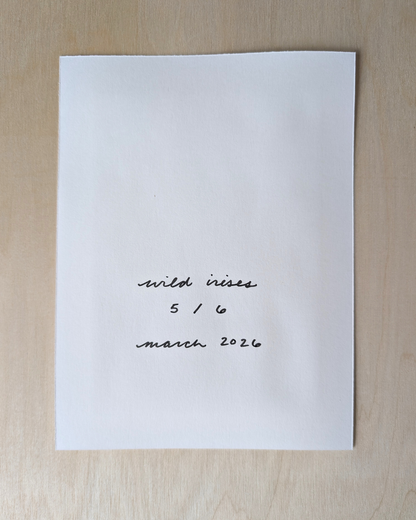 wild irises
5 / 6
march 2026